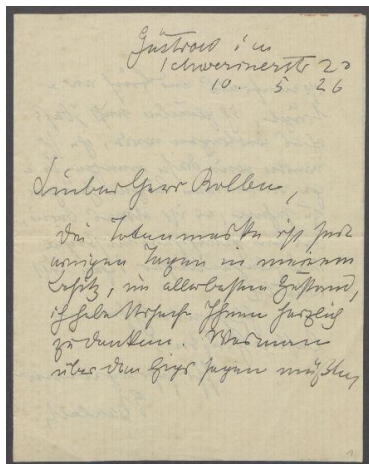 Güstrow i/m
Schwerinerstr 22
10. 5 26
Lieber Herr Kolbe,
die Totenmaske ist seit
einigen Tagen in meinem
Besitz, im allerbesten Zustand,
ich habe Ursache Ihnen herzlich
zu danken. Was man
über den Gips sagen müßte,